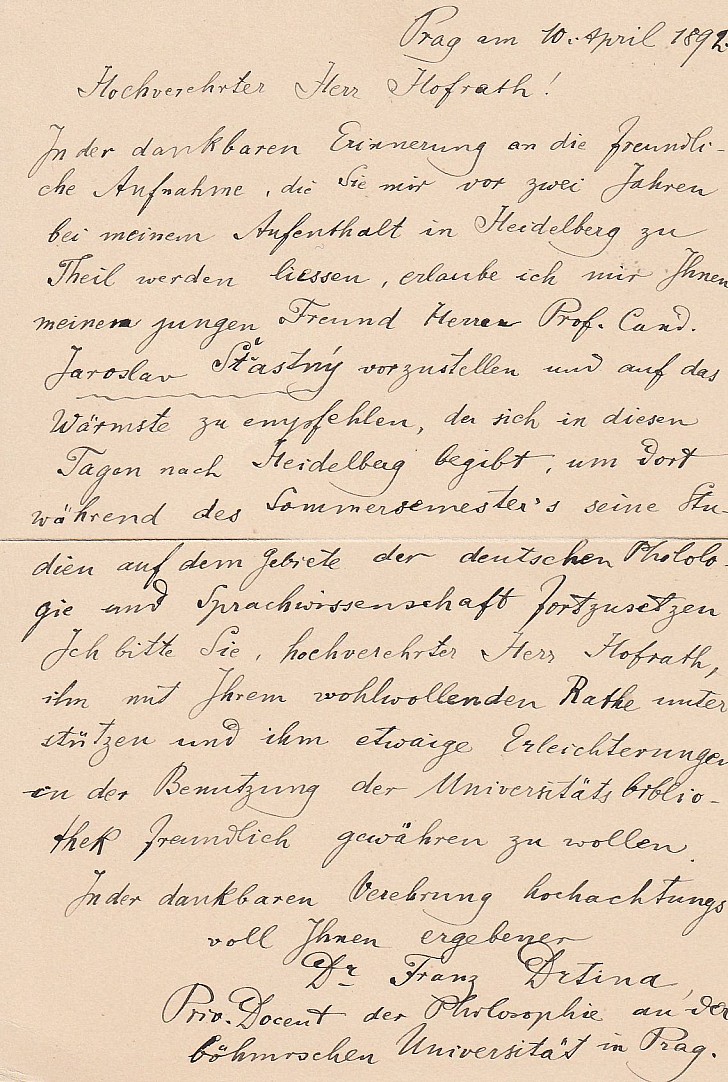 Prag am 10. April 1892.
Hochverehrter Herr Hofrath!
In der dankbaren Erinnerung an die freundli-
che Aufnahme, die Sie mir vor zwei Jahren
bei meinem Aufenthalt in Heidelberg zu
Theil werden liessen, erlaube ich mir Ihnen
meinem jungen Freund Herrn Prof. Cand.
Jaroslav Šťastný vorzustellen und auf das
Wärmste zu empfehlen, der sich in diesen
Tagen nach Heidelberg begibt, um dort
während des Sommersemester's seine Stu-
dien auf dem Gebiete der deutschen Philolo-
gie und Sprachwissenschaft fortzusetzen
Ich bitte Sie, hochverehrter Herr Hofrath,
ihm mit Ihrem wohlwollenden Rathe unter
stützen und ihm etwaige Erleichterungen
in der Benutzung der Universitätsbiblio-
thek freundlich gewähren zu wollen.
In der dankbaren Verehrung hochachtungs
voll Ihnen ergebener
Dr Franz Drtina,
Priv. Docent der Philosophie an der
böhmischen Universität in Prag.